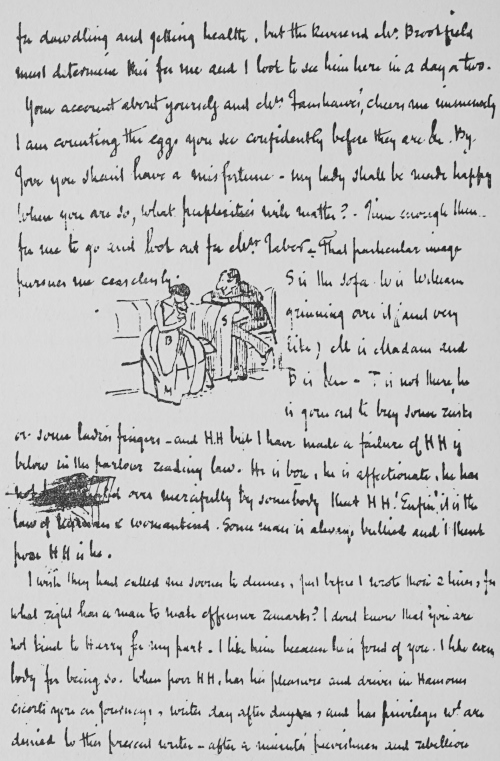 for dawdling and getting health, but the Reverend Mr. Brookfield
must determine this for me and I look to see him here in a day or two.
Your account about yourself and Mrs Fanshawe's, cheers me immensely
I am counting the eggs you see confidently before they are &c. By
Jove you shan't have a misfortune - my lady shall be made happy
When you are so, what perplexities will matter? - Time enough then
for me to go and look out for Mrs Tabor - That particular image
pursues me ceaselessly.
S is the sofa W is William
grinning over it, (and very
like) M is Madam and
B is &c - T is not there, he
is gone out to buy some rusks
or some ladies fingers - and HH but I have made a failure of HH is
below in the parlour reading law. He is he is affectionate, he has
not over mercifully by somebody that HH! Enfin, it is the
law of & womankind. Some man is always bullied and I think
poor HH is he.
I wish they had called me sooner to dinner, just before I wrote those 2 lines, for
what right has a man to make offensive remarks? I dont know that you are
not kind to Harry for my part - I like him because he is fond of you. I like every
body for being so. When poor HH, has his pleasure and drives in Hansoms
escorts you on journeys, writes day after day, and has privileges wh. are
denied to this present writer - after a minute's peevishness and rebellion